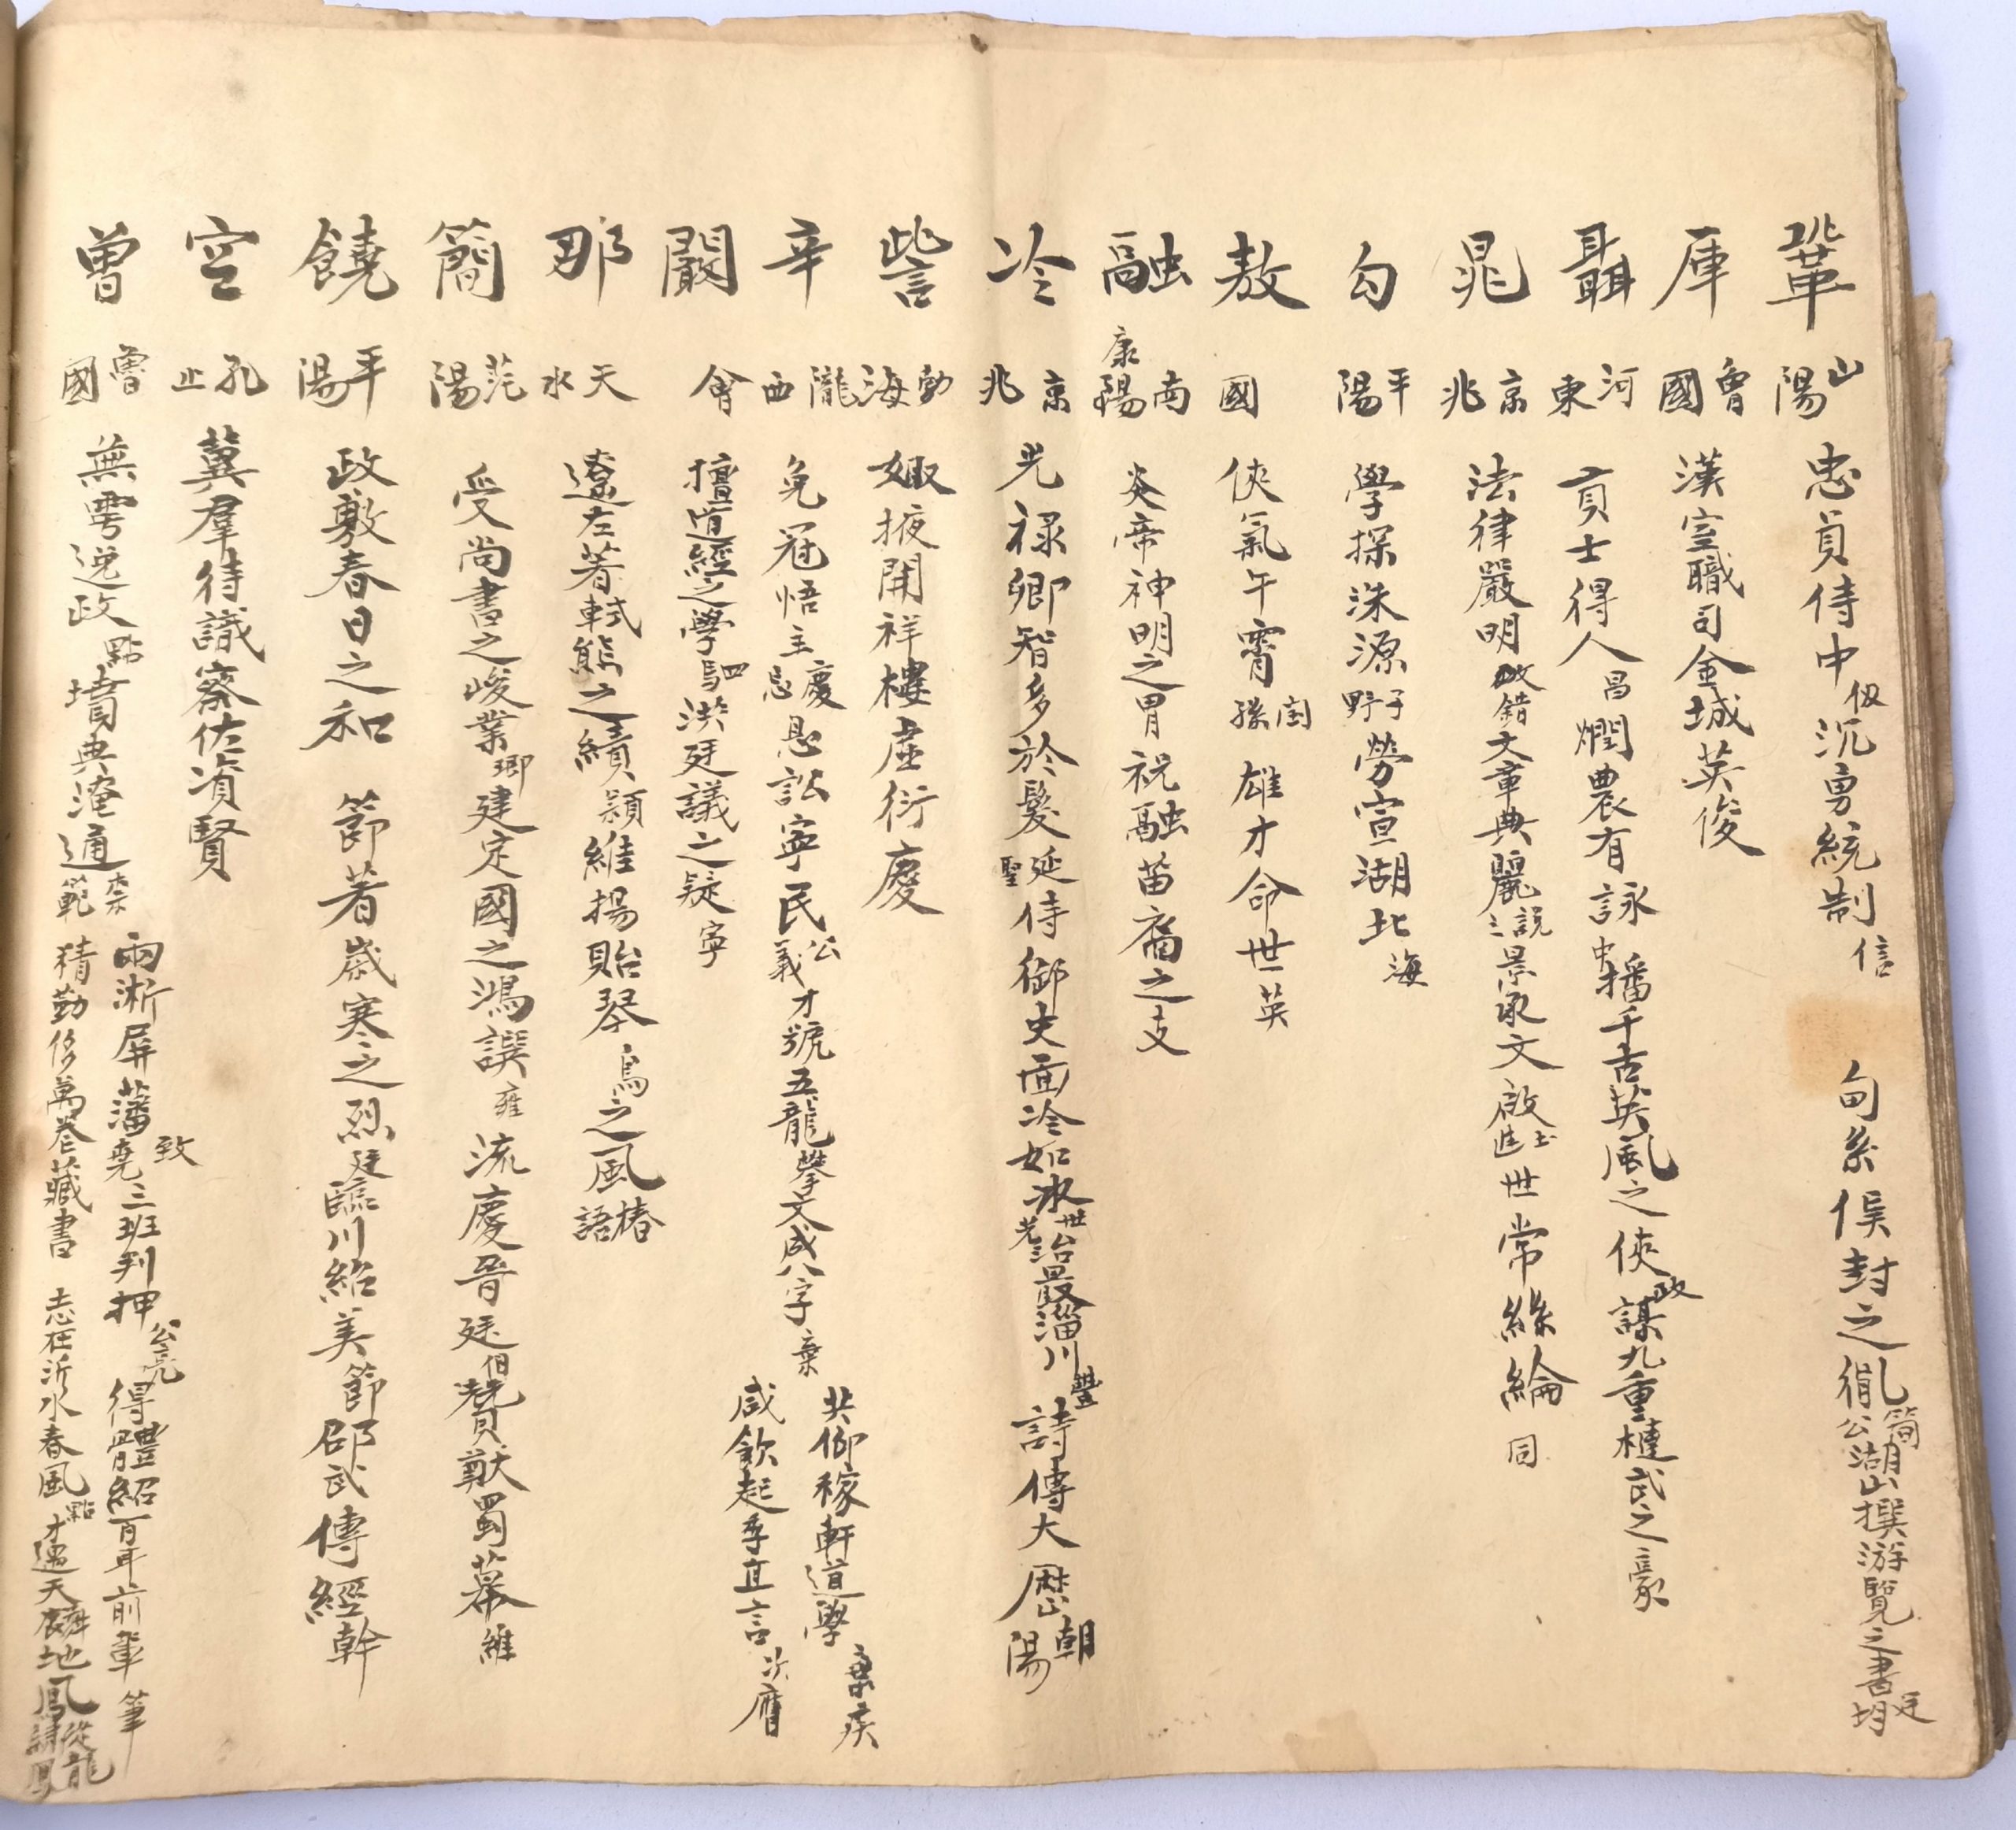 鞏 山陽 忠貞侍中 伋 沉勇統制 信 旬系侯封之 簡公 湖山撰游覽之書 廷
厙 魯國 漢室職司金城英俊
聶 河東 貢士得人 昌 燗農有詠 中 播千古英風之俠 政 謀九重槤武之豪
晁 京兆 法律嚴明 錯 文章典麗 説之 景承文 啟 世常絲綸 同
勾 平陽 學探洙源 子野 勞宣湖北 海
敖 國 俠氣午霄 閏孫 雄才命世 英
融 南康陽 炎帝神明之胃祝融苗裔之支
冷 京兆 光禄卿智多於髮 延聖 侍御史面冷如冰 世光 治最淄川 豐 詩傳大歷 朝陽
訾 勃海 娵掖開祥樓虛衍慶
辛 隴西 免冠悟主 慶忌 息訟寧民 公義 才號五龍攀文成八字 棄 共仰稼軒道學 棄疾 咸欽起季直言 次膺
闞 會 擅道經之學 駟 洪廷議之疑 寧
那 天水 遼左著軾熊之績 頴 維揚貽琴鳥之風 椿語
簡 范陽 受尚書之峻業 卿 建定國之鴻譔 雍 流慶晉廷 贊猷蜀幕 維
饒 平陽 政敷春日之和 節著歲寒之烈 廷 臨川紹美 節 邵武傳經 幹
空 孔止 冀羣待識察佐湏賢
曾 魯國 無雩逆政 點 墳典淹通 範 兩淅屏藩 致堯 三班判押 公亮 得體紹百年前輩 筆
精勤修萬卷藏書 志在沂水春風 點 才邁天麟地鳳 從龍